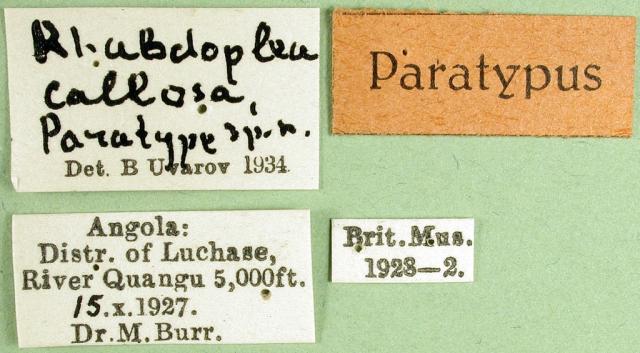 Rhabdoplea
callosa,
Paratype sp.n.
Det. B Uvarov 1934
Paratypus
Angola:
Distr. of Luchase,
River Quangu 5,000ft.
15.x.1927.
Dr.M.Burr.
Brit.Mus.
1928—2.